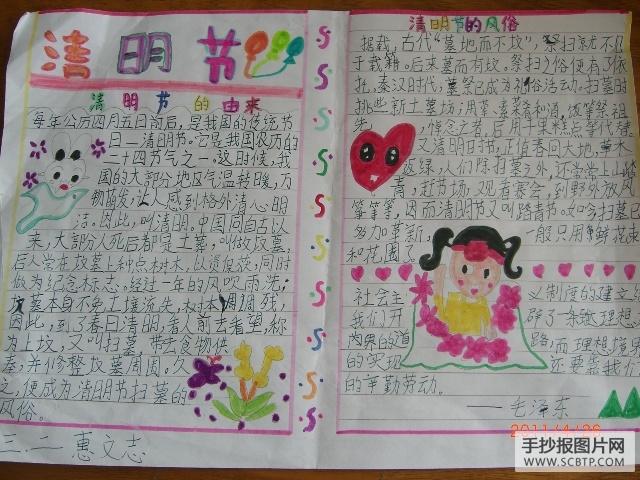 清明节
清明节的由来
每年公历四月五日前后，是我国的传统节
日—清明节。它是我国农历的
二十四节气之一。这时候，我
国的大部分地区气温转暖，万
物萌发，让人感到格外清心明
洁。因此，叫清明。中国同自古以
来，大部分人死后都是土墓，叫做坟墓，
后人常在坟墓上种点树木，以资保获，同时
做为纪念标志。经过一年的风吹雨洗，
坟墓本身不免土壤流失，树木凋残，
因此，到了春日清明，着人前去看望，称
为上坟，又叫扫墓。带去食物供
奉，并修整坟墓周围。久
之，便成为清明节扫墓的
风俗。
三.二 惠文志
清明节的风俗
据载，古代“墓地而不坟”，祭扫就不
于载籍。后来墓而有坟。祭扫之俗便有了依
托，秦汉时代，墓祭已成为礼俗活动。扫墓时
挑些新土墓坟，用苹、素菜肴和酒，拔等祭祖
先。悼念亡者，后用于果糕点等代替
又清明日节，正值春回大地，草木
返绿，人们除扫墓之外，还常常上山踏
青，赶节场，观看赛会，到野外放风
筝等等，因而清明节又叫踏青节。如今扫墓已
努加革新，一般只用鲜花束
和花圈了。
社会主义制度的建立给
我们开辟了一条到理想
的道路，而理想境界
的实现还要靠我们
的辛勤劳动。
——毛泽东
2011/4/26
手抄报图片网
WWW.SCBTP.COM